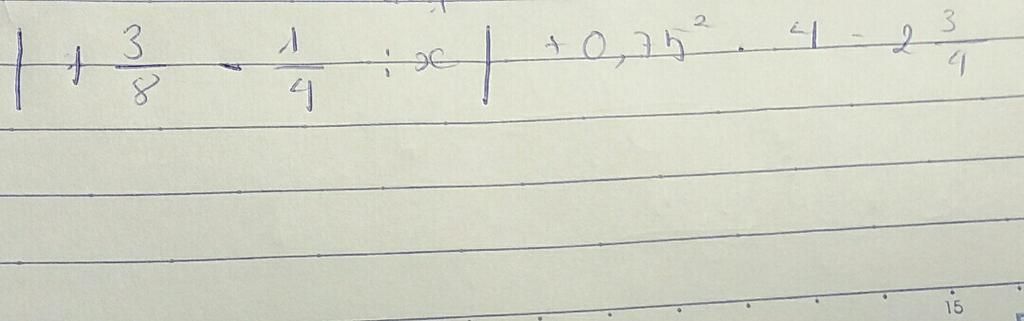 | + 3/8 - 1/4 : x | + 0,75² . 4 - 2 3/4
15